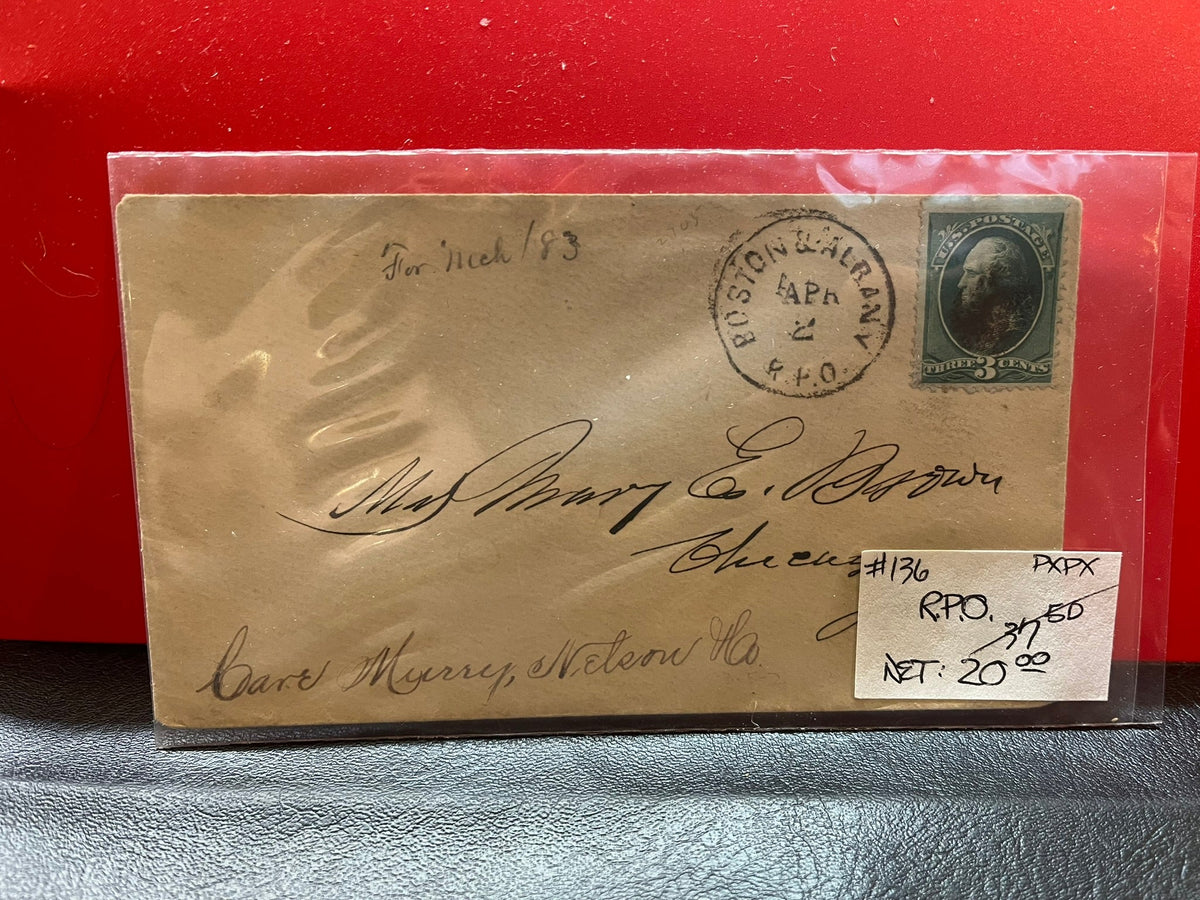 For Mch /83
2705
BOSTON & ALBANY
APR
2
R.P.O.
U.S. POSTAGE
THREE 3 CENTS
Mrs Mary E. Brown
Care Murry, Nelson & Co.
#136 PXPX
R.P.O.
37 50
NET: 20 00